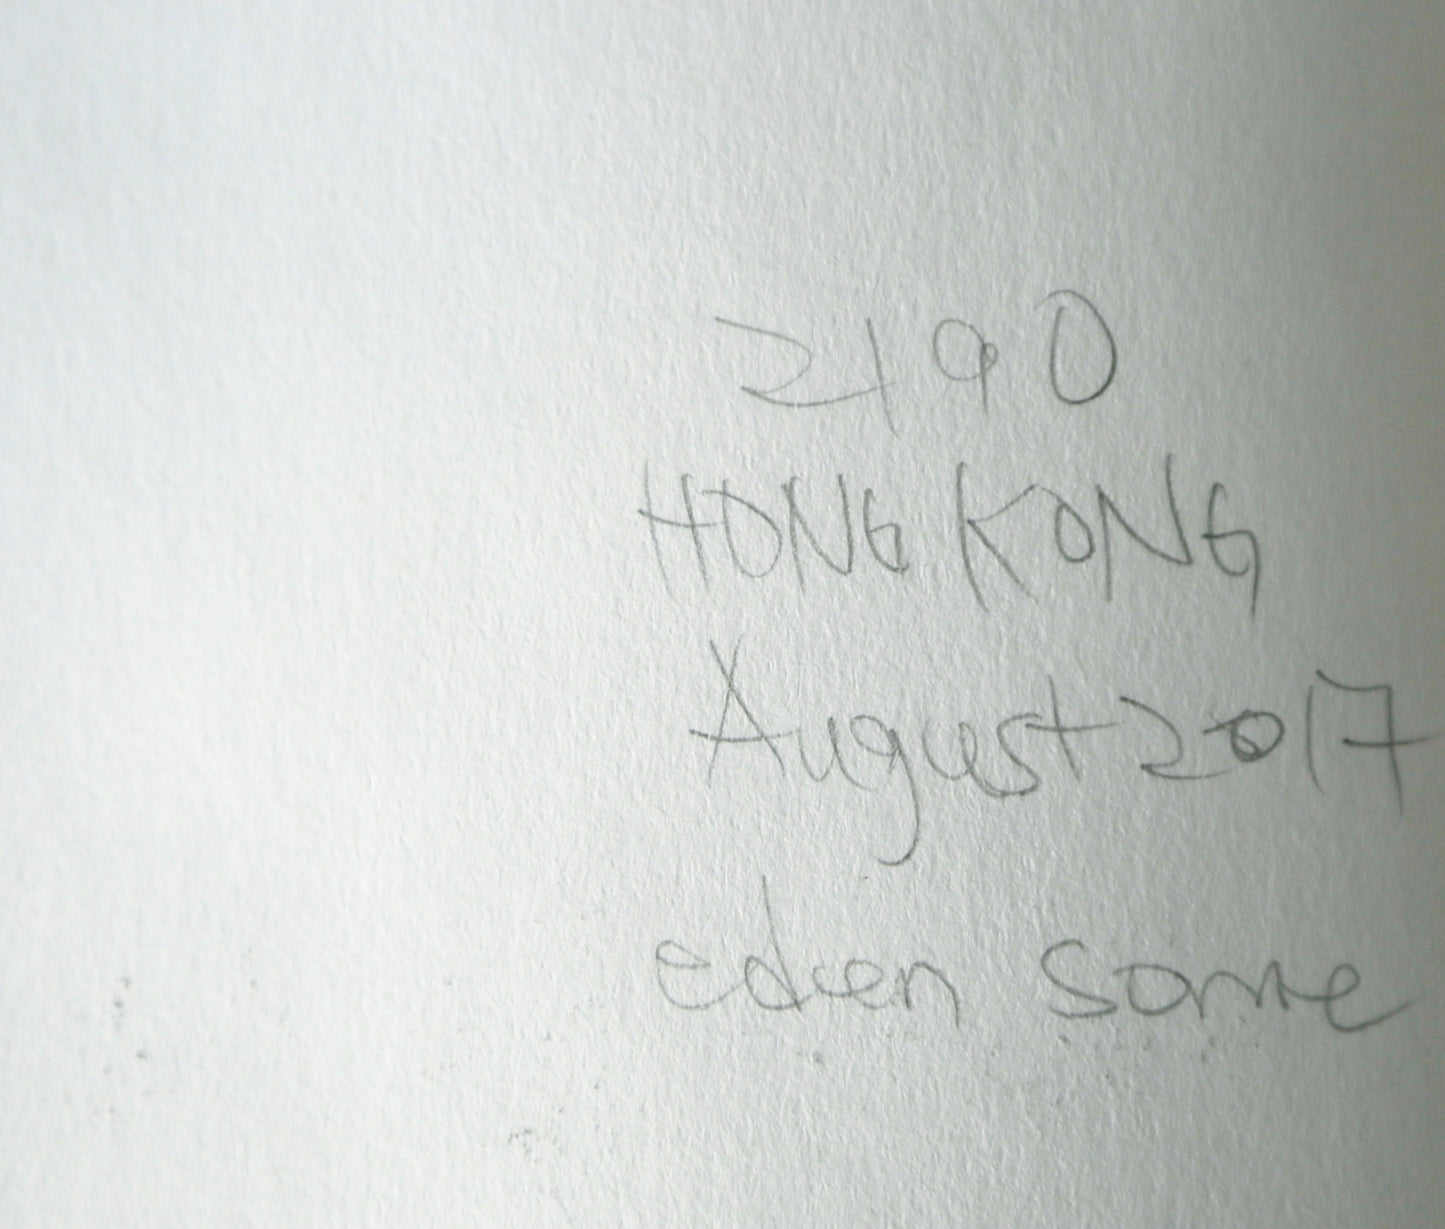 2190
HONG KONG
August 2017
eden some